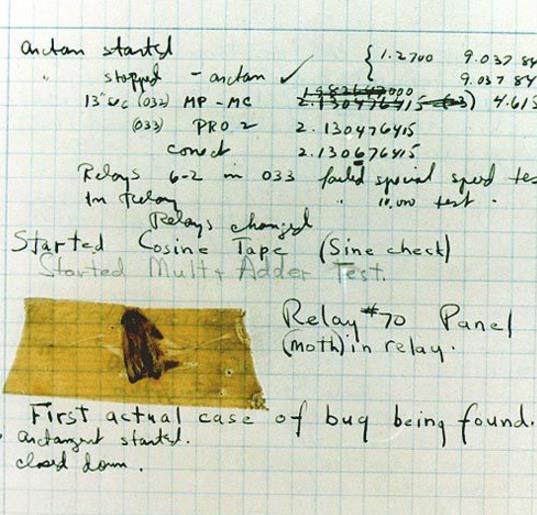 arctan started { 1.2700 9.037 84
" stopped - arctan ✓ 9.037 84
13"sec (032) MP - MC 2.130476415 (-3) 4.615
(033) PRO 2 2.130476415
conect 2.130676415
Relays 6-2 in 033 failed special speed tes
In Relay " 10,000 test.
Relays changed
Started Cosine Tape (Sine check)
Started Mult + Adder Test.
Relay #70 Panel
(moth) in relay.
First actual case of bug being found.
arctangent started.
closed down.